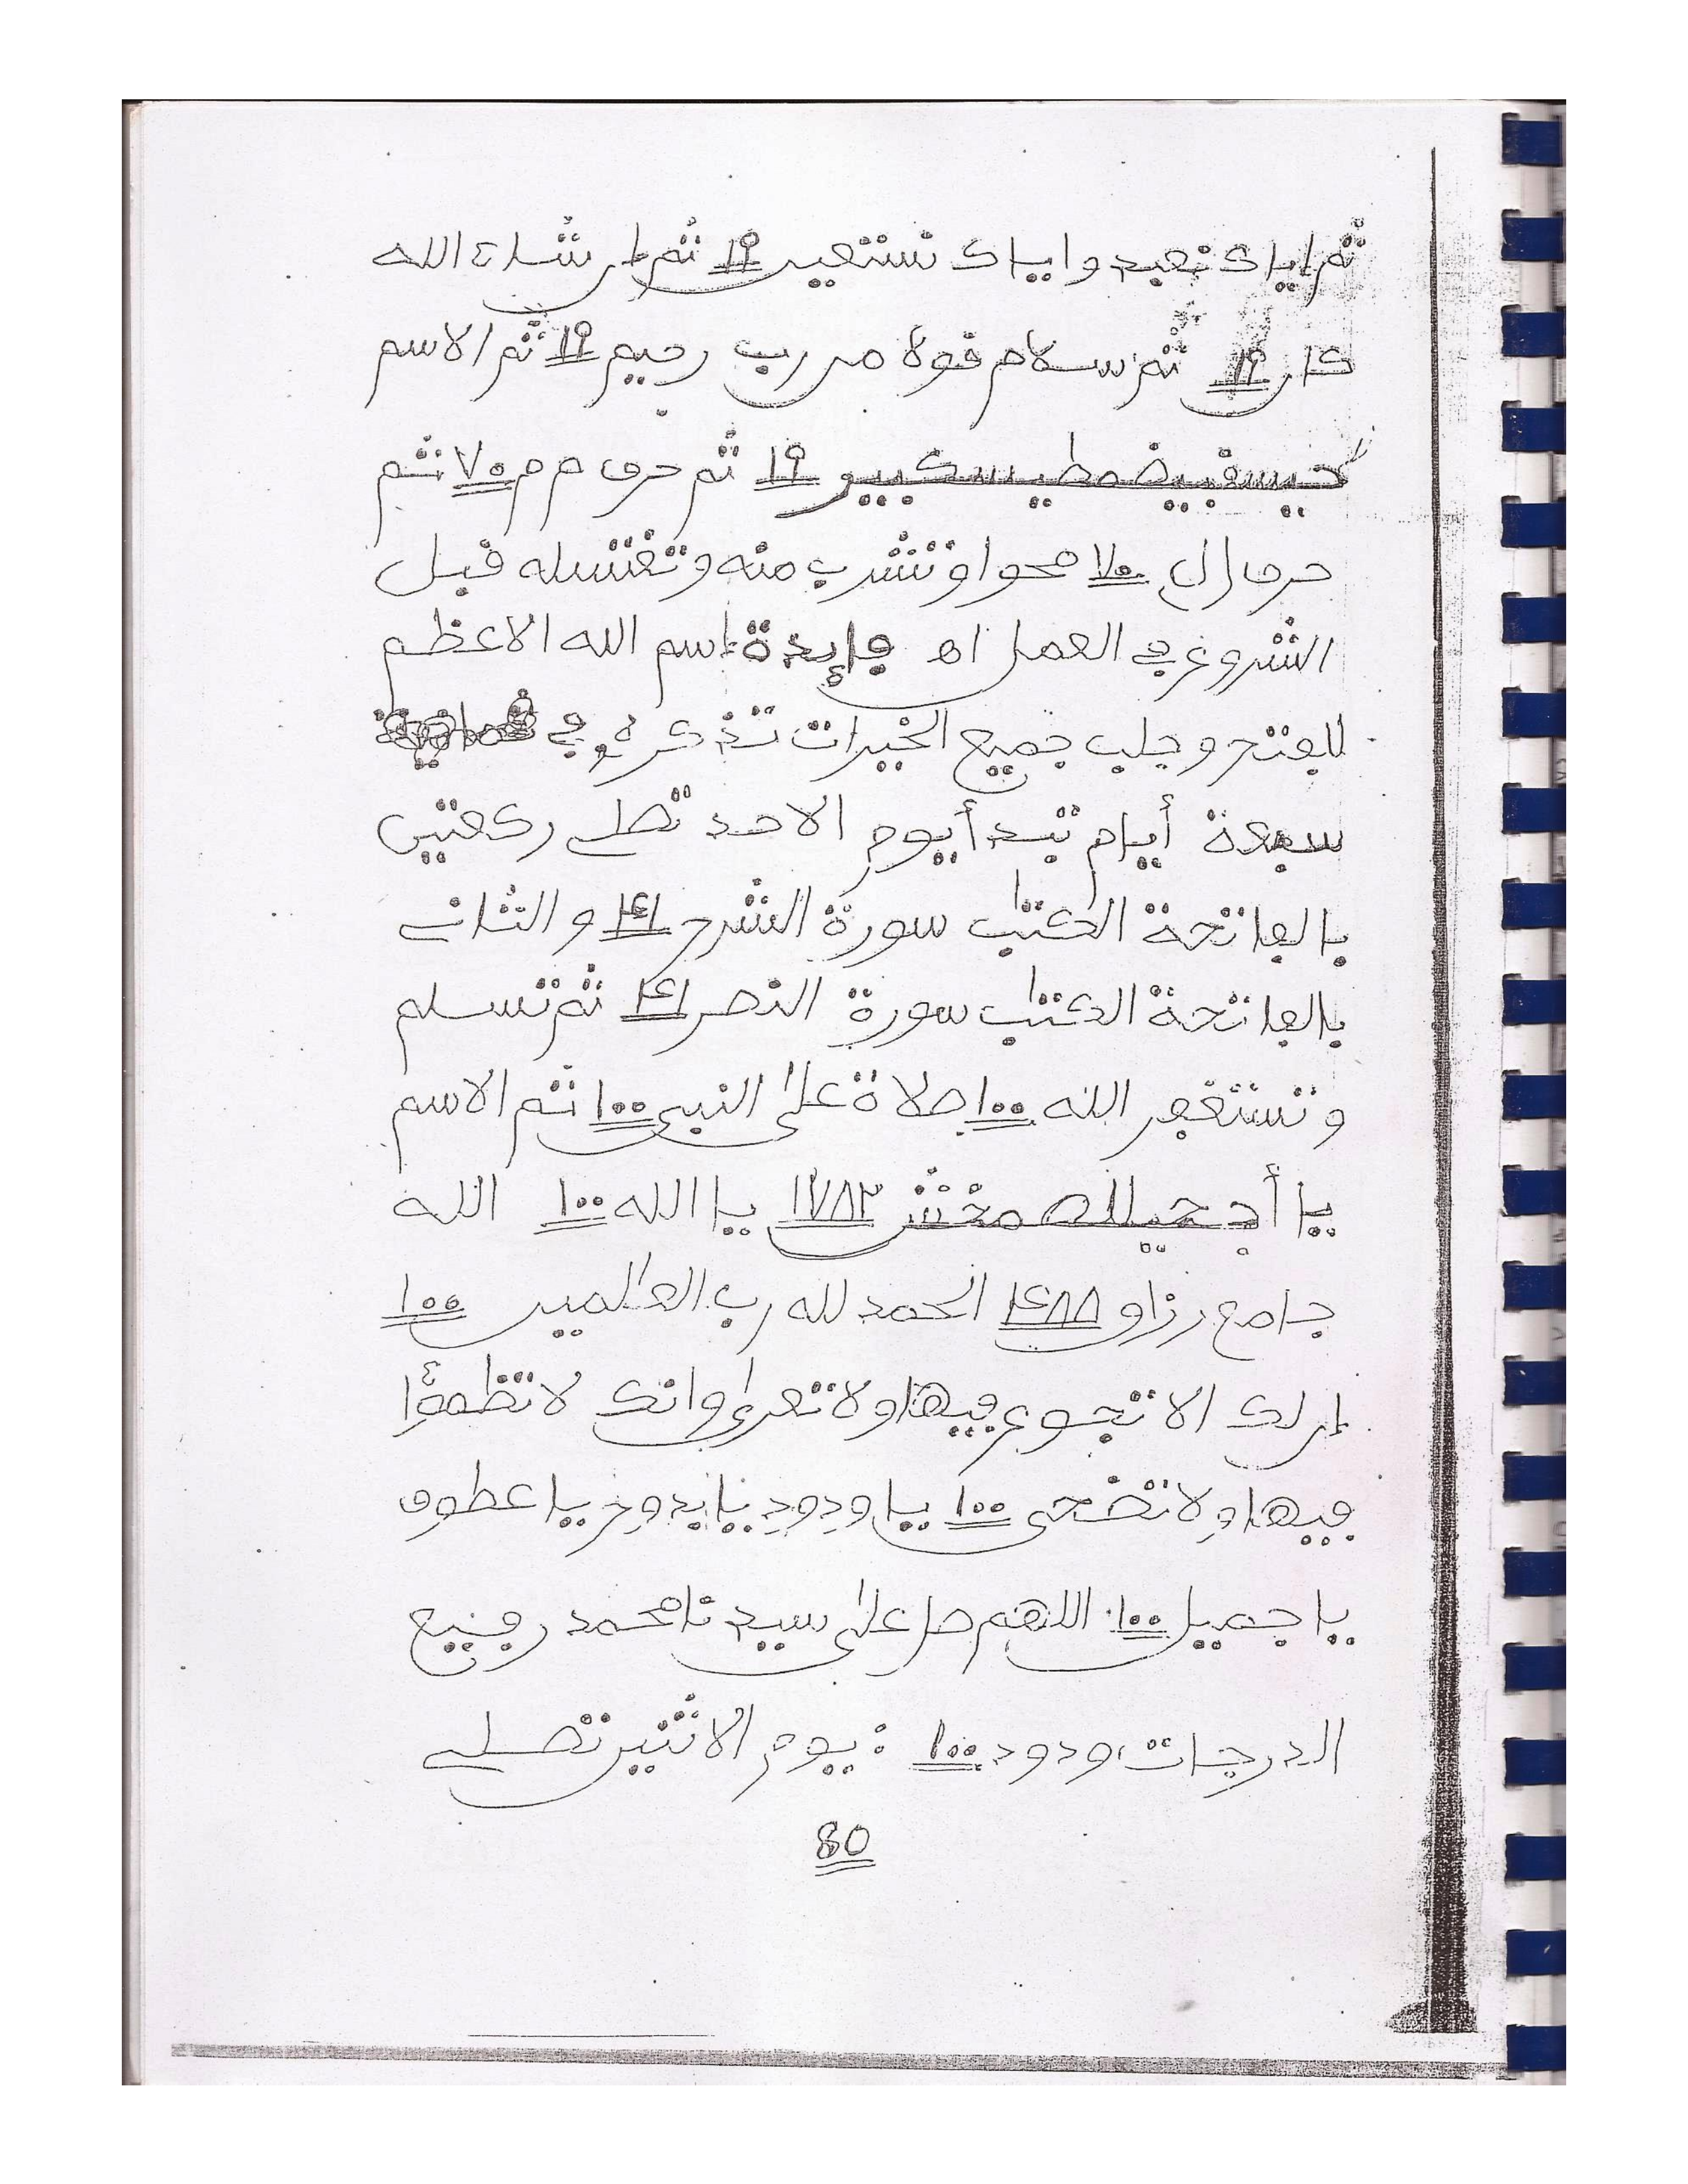 ثم اياك نعبد واياك نستعين ١٩ ثم ان شاء الله
كان ١٩ ثم سلام قولا من رب رحيم ١٩ ثم الاسم
١٩ ثم حرف م م ٧٠ ثم
حرف ل ٧٠ محوا وتشرب منه وتغتسله قبل
الشروع في العمل اه فايدة اسم الله الاعظم
للفتح وجلب جميع الخيرات تذكره في
سبعة أيام تبدأ يوم الاحد تصلي ركعتين
بالفاتحة الكتب سورة الشرح ٤١ و الثاني
بالفاتحة الكتب سورة النصر ٤١ ثم تسلم
وتستغفر الله ١٠٠ صلاة على النبي ١٠٠ ثم الاسم
يا ١٧٨٣ يا الله ١٠٠ الله
جامع رزاق الحمد لله رب العلمين ١٠٠
ان لك الا تجوع فيها ولا تعرى وانك لا تظمؤا
فيها ولا تضحى ١٠٠ يا ودود يا بدوح يا عطوف
يا جميل ١٠٠ اللهم صل على سيدنا محمد رفيع
الدرجات ودود ١٠٠ : يوم الاثنين تصلي
80